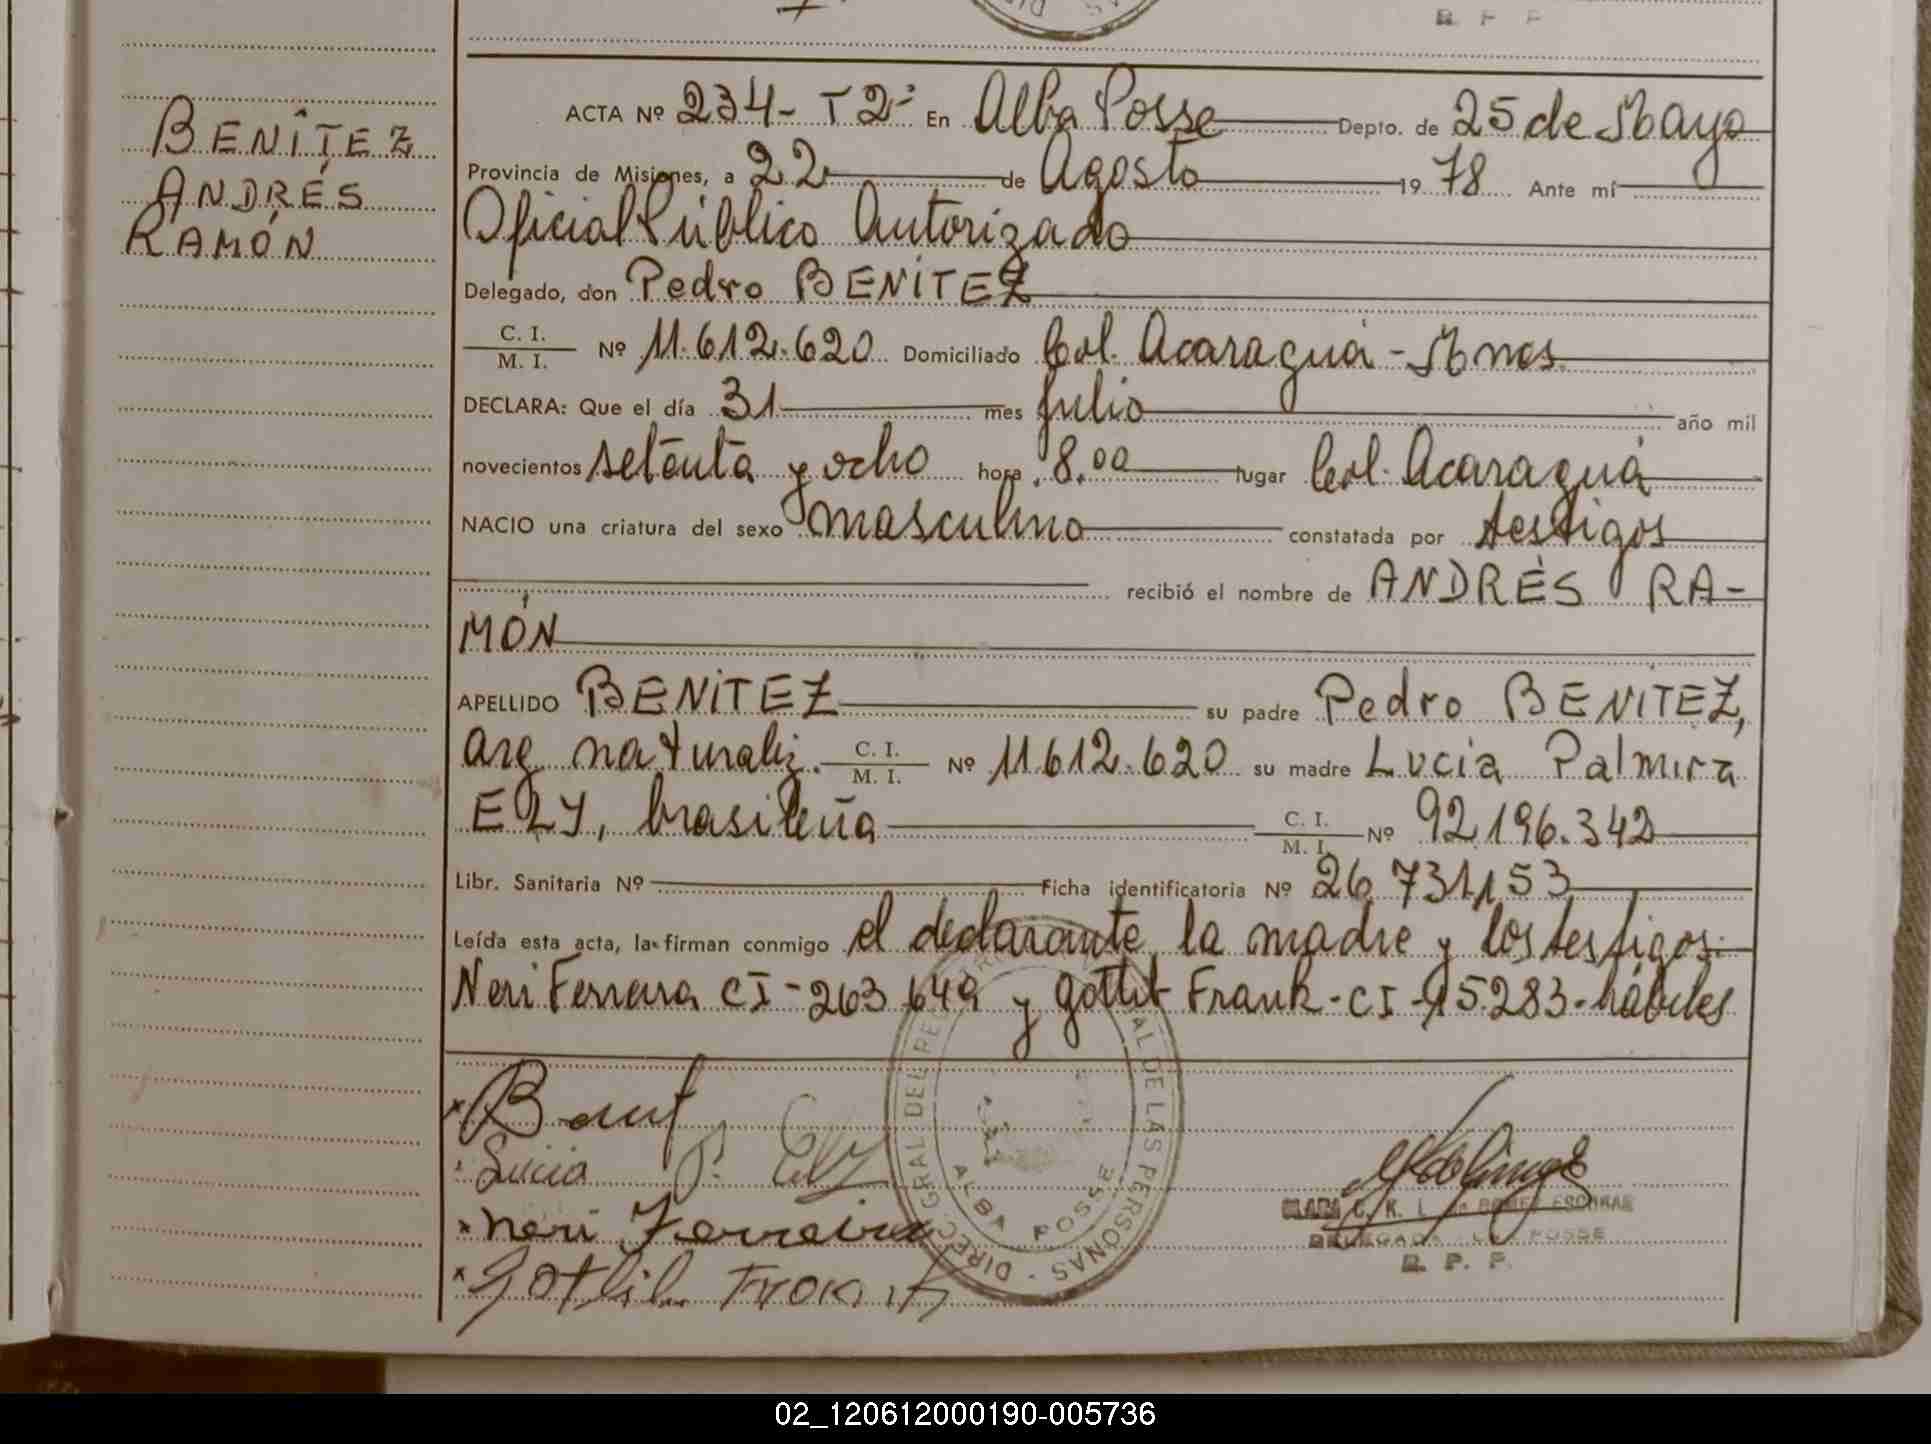 R. P. P.
BENÍTEZ
ANDRÉS
RAMÓN
ACTA Nº 234- T 2- En Alba Posse Depto. de 25 de Mayo
Provincia de Misiones, a 22 de Agosto 19 78 Ante mí
Oficial Público Autorizado
Delegado, don Pedro BENÍTEZ
C. I.
M. I. Nº 11.612.620 Domiciliado Col. Acaraguá - Mnes.
DECLARA: Que el día 31 mes Julio año mil
novecientos setenta y ocho hora 8.00 lugar Col. Acaraguá
NACIO una criatura del sexo masculino constatada por testigos
recibió el nombre de ANDRÉS RA-
MÓN
APELLIDO BENÍTEZ su padre Pedro BENÍTEZ,
arg. naturaliz. C. I.
M. I. Nº 11.612.620 su madre Lucía Palmira
ELY, brasileña C. I.
M. I. Nº 92.196.342
Libr. Sanitaria Nº Ficha identificatoria Nº 26.731.153
Leída esta acta, la firman conmigo el declarante la madre y los testigos:
Neri Ferrera CI-263.649 y Gottlib Frank-CI-95.283-hábiles
Lucia P. Ely
Neri Ferreira
Gotlib Frank
DIREC. GRAL DEL DE LAS PERSONAS
ALBA POSSE
CLARA C. K. ESCOBAR
DELEGADA POSSE
R. P. P.
02_120612000190-005736